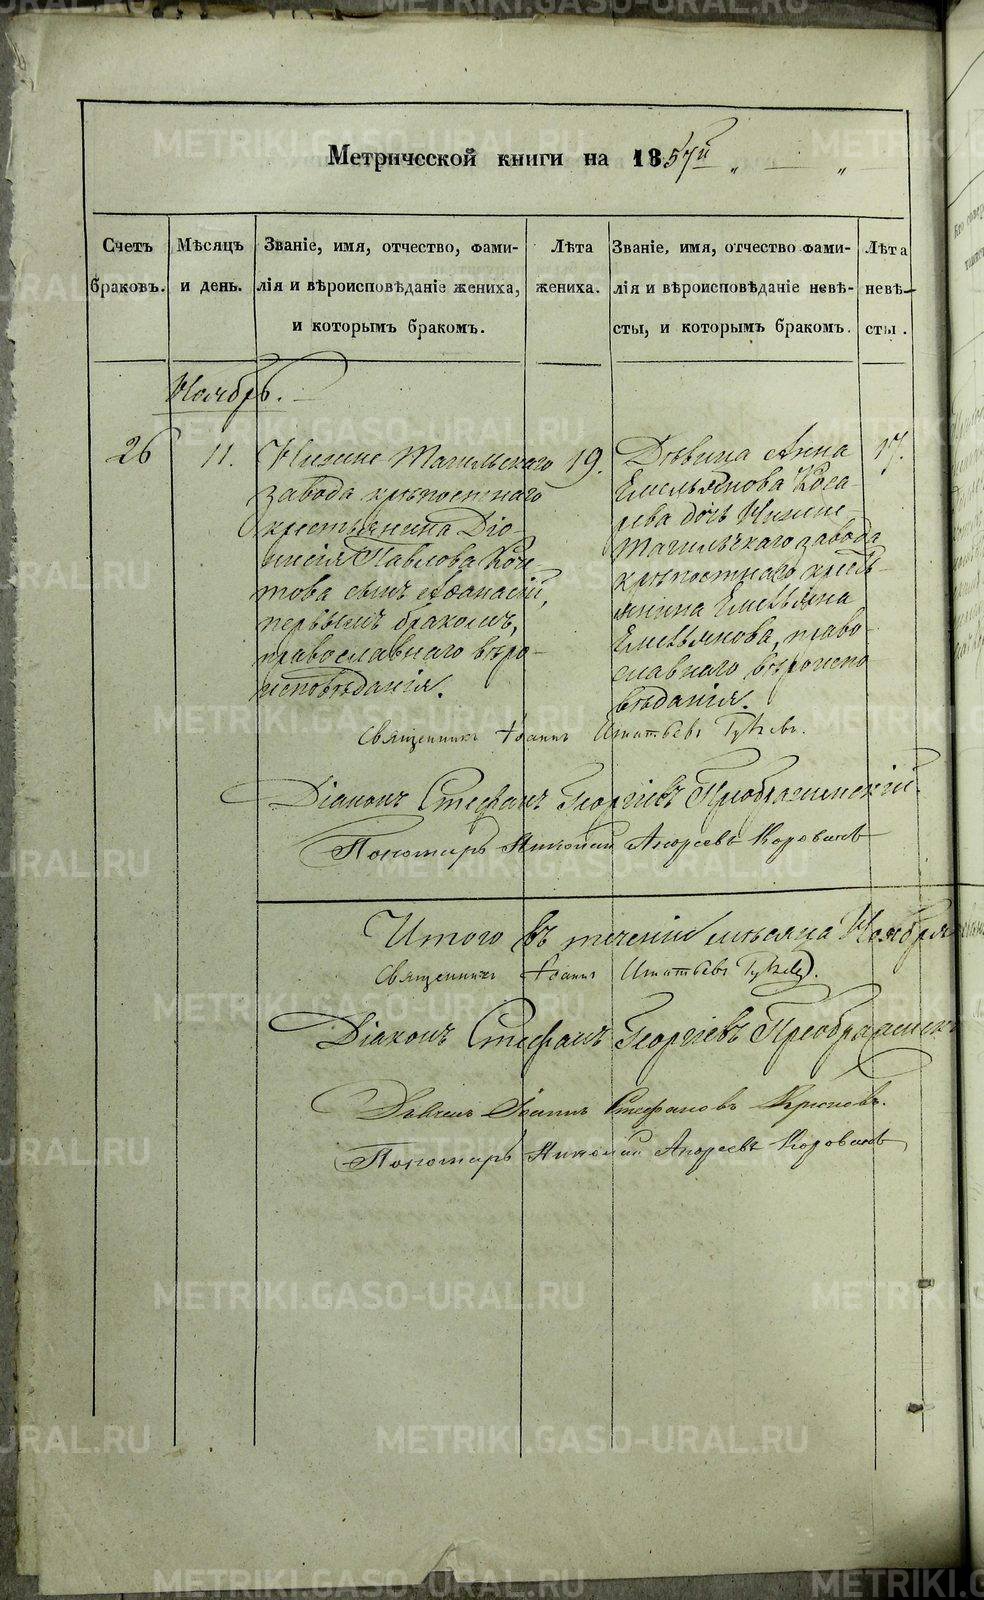 Метрической книги на 1857й
Счетъ браковъ.
Мѣсяцъ и день.
Званіе, имя, отчество, фами-
лія и вѣроисповѣданіе жениха,
и которымъ бракомъ.
Лѣта жениха.
Званіе, имя, отчество фами-
лія и вѣроисповѣданіе невѣ-
сты, и которымъ бракомъ.
Лѣта невѣ-
сты.
Ноябрь.
26
11.
Нижне Тагильскаго
завода крѣпостнаго
крестьянина Діо-
нисія Павлова
това сынъ Аѳанасій,
первымъ бракомъ,
православнаго вѣро-
исповѣданія.
19.
Дѣвица Анна
Емельянова Коса-
рева дочь Нижне-
Тагильскаго завода
крѣпостнаго кресть-
янина Емельяна
Емельянова, право-
славнаго вѣроиспо
вѣданія.
17.
Священникъ Іоаннъ Игнатьевъ
Діаконъ Стефанъ Георгіевъ Преображенскій.
Пономарь Николай Андреевъ Коровинъ
Итого въ теченіи мѣсяца Ноября
Священникъ Іоаннъ Игнатьевъ
Діаконъ Стефанъ Георгіевъ Преображенск
Дьячекъ Іоаннъ Стефановъ Крюковъ.
Пономарь Николай Андреевъ Коровинъ
METRIKI.GASO-URAL.RU